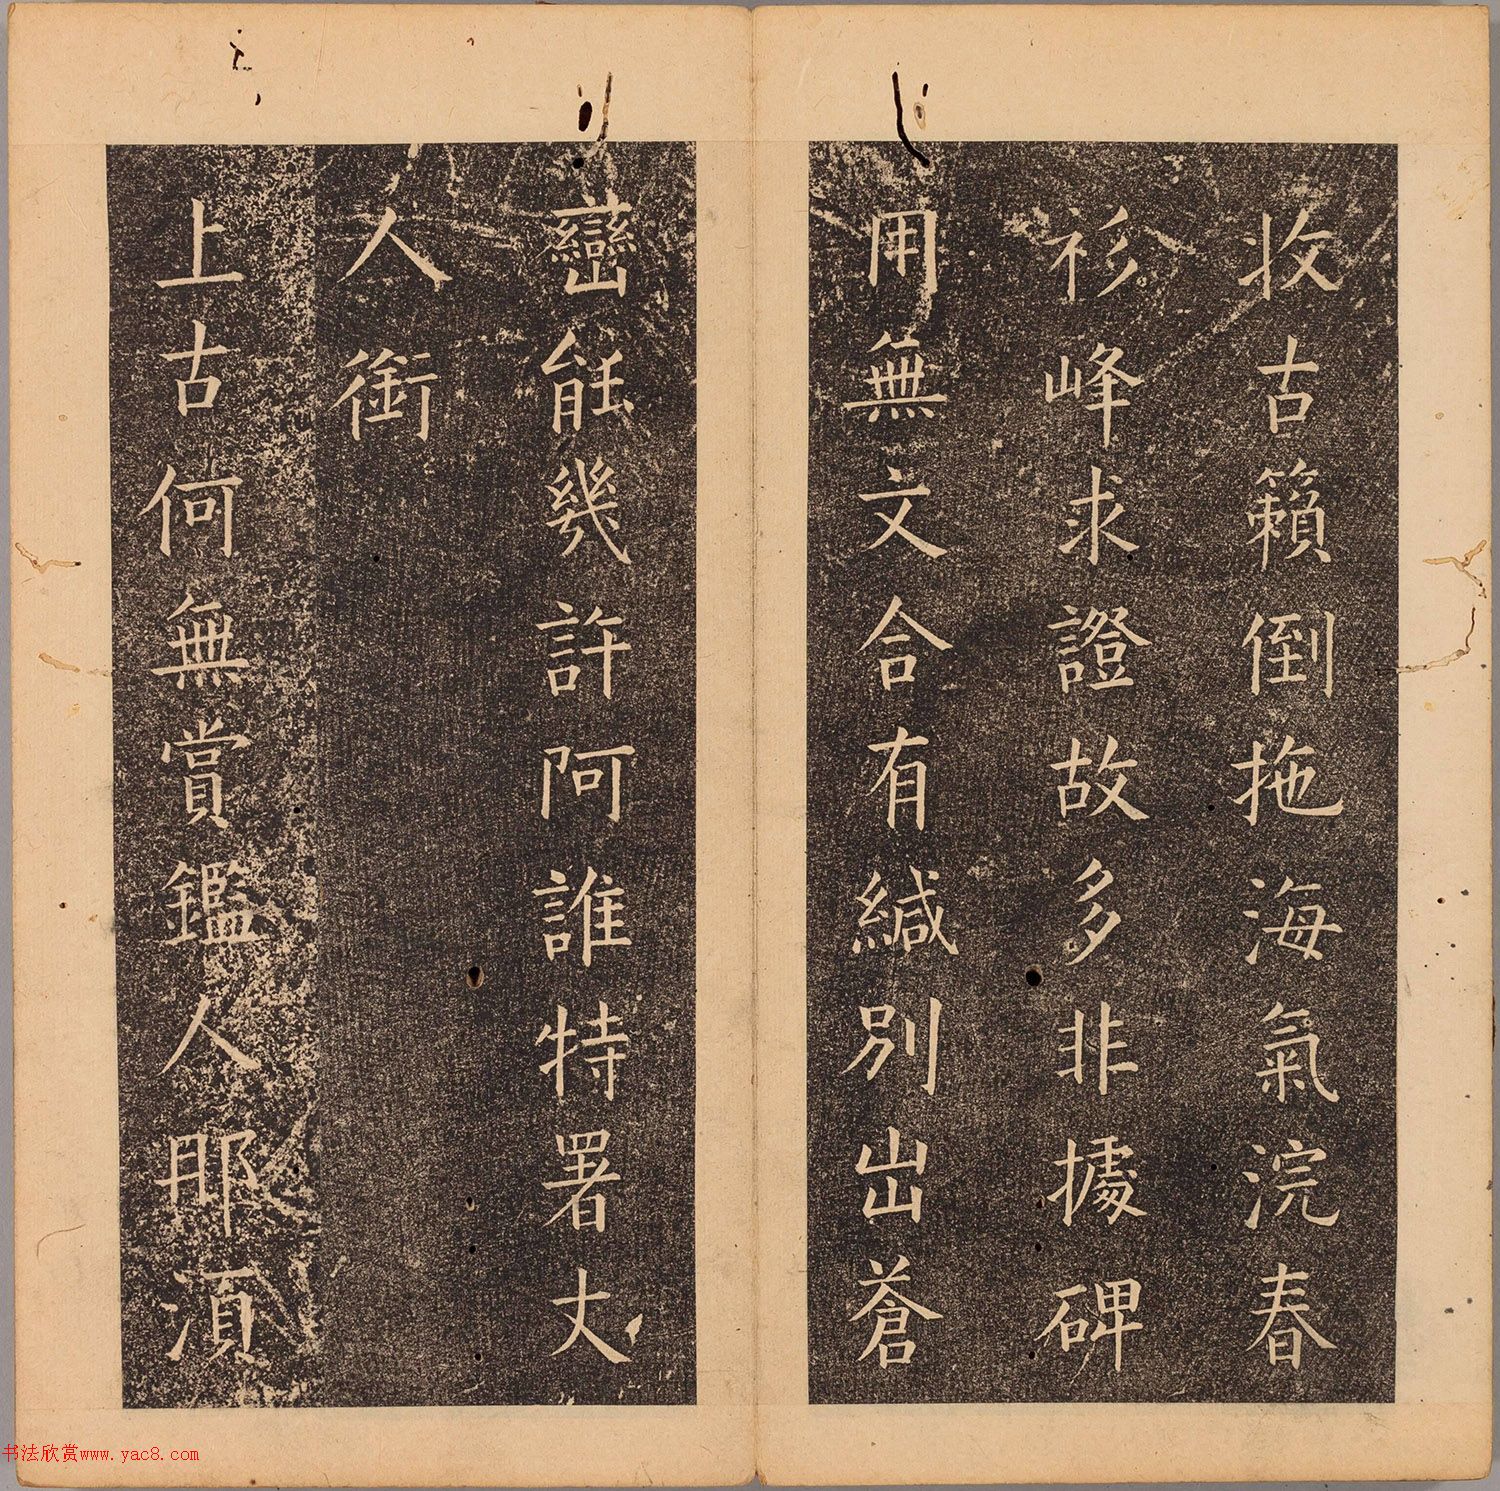 收古籟倒拖海氣浣春
衫峰求證故多非據碑
用無文合有緘別出蒼
巒能幾許阿誰特署丈
人銜
上古何無賞鑑人那須
书法欣赏www.yac8.com